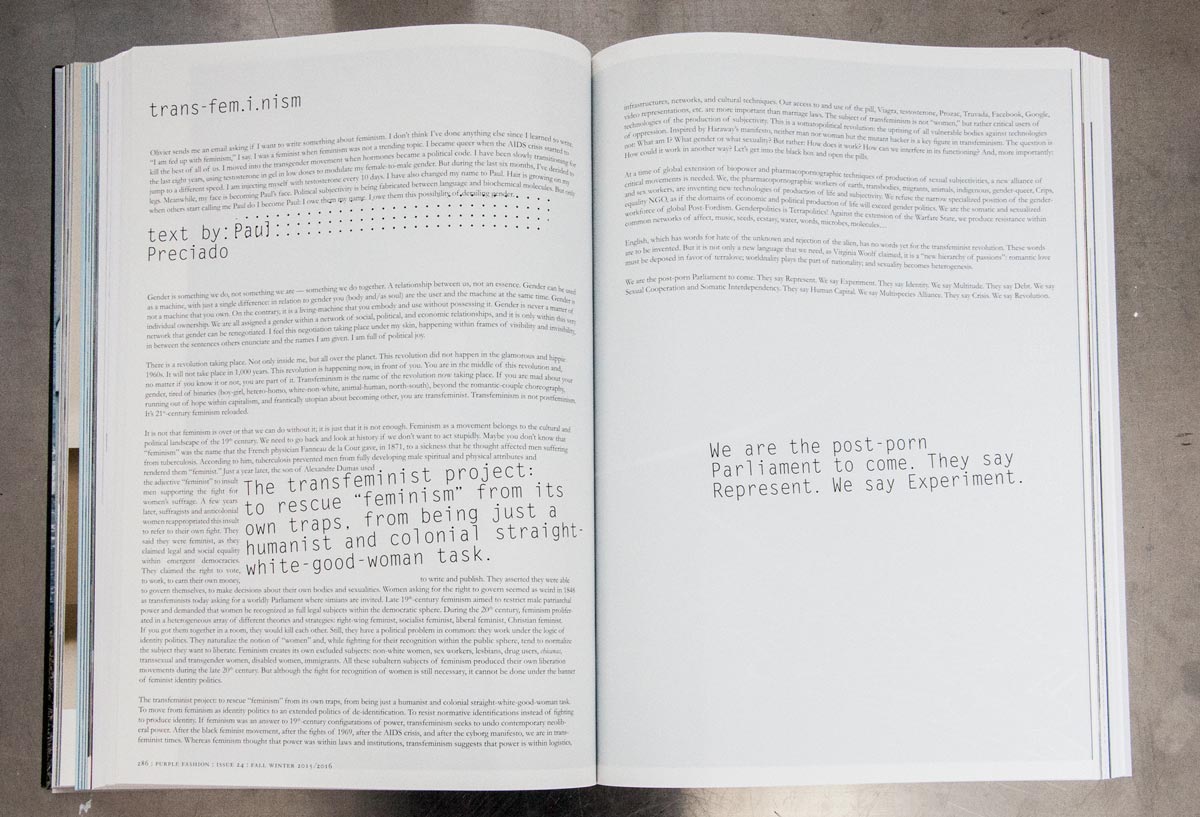 trans-fem.i.nism
Olivier sends me an email asking if I want to write something about feminism. I don't think I've done anything else since I learned to write.
"I am fed up with feminism," I say. I was a feminist when feminism was not a trending topic. I became queer when the AIDS crisis started to
kill the best of all of us. I moved into the transgender movement when hormones became a political code. I have been slowly transitioning for
the last eight years, using testosterone in gel in low doses to modulate my female-to-male gender. But during the last six months, I've decided to
jump to a different speed. I am injecting myself with testosterone every 10 days. I have also changed my name to Paul. Hair is growing on my
legs. Meanwhile, my face is becoming Paul's face. Political subjectivity is being fabricated between language and biochemical molecules. But only
when others start calling me Paul do I become Paul: I owe them my name. I owe them this possibility of derailing gender.
text by: Paul
Preciado
Gender is something we do, not something we are — something we do together. A relationship between us, not an essence. Gender can be used
as a machine, with just a single difference: in relation to gender you (body and/as soul) are the user and the machine at the same time. Gender is
not a machine that you own. On the contrary, it is a living-machine that you embody and use without possessing it. Gender is never a matter of
individual ownership. We are all assigned a gender within a network of social, political, and economic relationships, and it is only within this very
network that gender can be renegotiated. I feel this negotiation taking place under my skin, happening within frames of visibility and invisibility,
in between the sentences others enunciate and the names I am given. I am full of political joy.
There is a revolution taking place. Not only inside me, but all over the planet. This revolution did not happen in the glamorous and hippie
1960s. It will not take place in 1,000 years. This revolution is happening now, in front of you. You are in the middle of this revolution and,
no matter if you know it or not, you are part of it. Transfeminism is the name of the revolution now taking place. If you are mad about your
gender, tired of binaries (boy-girl, hetero-homo, white-non-white, animal-human, north-south), beyond the romantic-couple choreography,
running out of hope within capitalism, and frantically utopian about becoming other, you are transfeminist. Transfeminism is not postfeminism.
It's 21st-century feminism reloaded.
It is not that feminism is over or that we can do without it; it is just that it is not enough. Feminism as a movement belongs to the cultural and
political landscape of the 19th century. We need to go back and look at history if we don't want to act stupidly. Maybe you don't know that
"feminism" was the name that the French physician Fanneau de la Cour gave, in 1871, to a sickness that he thought affected men suffering
from tuberculosis. According to him, tuberculosis prevented men from fully developing male spiritual and physical attributes and
rendered them "feminist." Just a year later, the son of Alexandre Dumas used
the adjective "feminist" to insult
men supporting the fight for
women's suffrage. A few years
later, suffragists and anticolonial
women reappropriated this insult
to refer to their own fight. They
said they were feminist, as they
claimed legal and social equality
within emergent democracies.
They claimed the right to vote,
to work, to earn their own money,
The transfeminist project:
to rescue "feminism" from its
own traps, from being just a
humanist and colonial straight-
white-good-woman task.
to write and publish. They asserted they were able
to govern themselves, to make decisions about their own bodies and sexualities. Women asking for the right to govern seemed as weird in 1848
as transfeminists today asking for a worldly Parliament where simians are invited. Late 19th-century feminism aimed to restrict male patriarchal
power and demanded that women be recognized as full legal subjects within the democratic sphere. During the 20th century, feminism prolifer-
ated in a heterogeneous array of different theories and strategies: right-wing feminist, socialist feminist, liberal feminist, Christian feminist.
If you got them together in a room, they would kill each other. Still, they have a political problem in common: they work under the logic of
identity politics. They naturalize the notion of "women" and, while fighting for their recognition within the public sphere, tend to normalize
the subject they want to liberate. Feminism creates its own excluded subjects: non-white women, sex workers, lesbians, drug users, chicanas,
transsexual and transgender women, disabled women, immigrants. All these subaltern subjects of feminism produced their own liberation
movements during the late 20th century. But although the fight for recognition of women is still necessary, it cannot be done under the banner
of feminist identity politics.
The transfeminist project: to rescue "feminism" from its own traps, from being just a humanist and colonial straight-white-good-woman task.
To move from feminism as identity politics to an extended politics of de-identification. To resist normative identifications instead of fighting
to produce identity. If feminism was an answer to 19th-century configurations of power, transfeminism seeks to undo contemporary neolib-
eral power. After the black feminist movement, after the fights of 1969, after the AIDS crisis, and after the cyborg manifesto, we are in trans-
feminist times. Whereas feminism thought that power was within laws and institutions, transfeminism suggests that power is within logistics,
286 | PURPLE FASHION | ISSUE 24 | FALL WINTER 2015/2016
infrastructures, networks, and cultural techniques. Our access to and use of the pill, Viagra, testosterone, Prozac, Truvada, Facebook, Google,
video representations, etc. are more important than marriage laws. The subject of transfeminism is not "women," but rather critical users of
technologies of the production of subjectivity. This is a somatopolitical revolution: the uprising of all vulnerable bodies against technologies
of oppression. Inspired by Haraway's manifesto, neither man nor woman but the mutant hacker is a key figure in transfeminism. The question is
not: What am I? What gender or what sexuality? But rather: How does it work? How can we interfere in its functioning? And, more importantly:
How could it work in another way? Let's get into the black box and open the pills.
At a time of global extension of biopower and pharmacopornographic techniques of production of sexual subjectivities, a new alliance of
critical movements is needed. We, the pharmacopornographic workers of earth, transbodies, migrants, animals, indigenous, gender-queer, Crips,
and sex workers, are inventing new technologies of production of life and subjectivity. We refuse the narrow specialized position of the gender-
equality NGO, as if the domains of economic and political production of life will exceed gender politics. We are the somatic and sexualized
workforce of global Post-Fordism. Genderpolitics is Terrapolitics! Against the extension of the Warfare State, we produce resistance within
common networks of affect, music, seeds, ecstasy, water, words, microbes, molecules…
English, which has words for hate of the unknown and rejection of the alien, has no words yet for the transfeminist revolution. These words
are to be invented. But it is not only a new language that we need, as Virginia Woolf claimed, it is a "new hierarchy of passions": romantic love
must be deposed in favor of terralove; worldnality plays the part of nationality; and sexuality becomes heterogenesis.
We are the post-porn Parliament to come. They say Represent. We say Experiment. They say Identity. We say Multitude. They say Debt. We say
Sexual Cooperation and Somatic Interdependency. They say Human Capital. We say Multispecies Alliance. They say Crisis. We say Revolution.
We are the post-porn
Parliament to come. They say
Represent. We say Experiment.